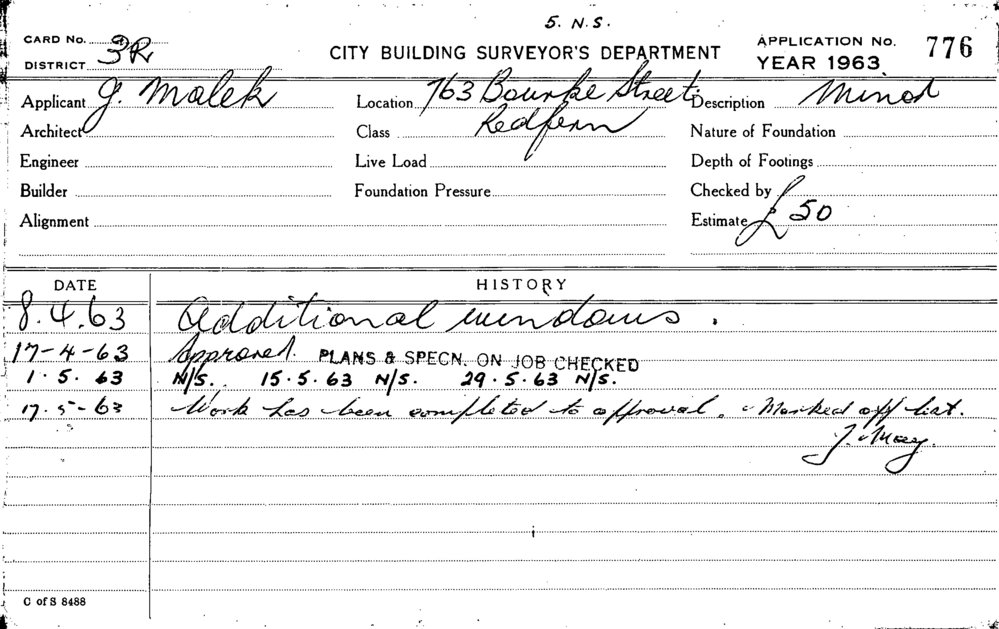 5. N.S.
CARD No. 3R
DISTRICT
CITY BUILDING SURVEYOR'S DEPARTMENT
APPLICATION No. 776
YEAR 1963
Applicant J. Malek
Location 763 Bourke Street
Description Minor
Architect
Class Redfern
Nature of Foundation
Engineer
Live Load
Depth of Footings
Builder
Foundation Pressure
Checked by
Alignment
Estimate £50
DATE HISTORY
8.4.63 Additional windows.
17-4-63 Approved. PLANS & SPECN. ON JOB CHECKED
1.5.63 N/S. 15.5.63 N/S. 29.5.63 N/S.
17-5-63 Work has been completed to approval. Marked off list.
J. May.
C of S 8488